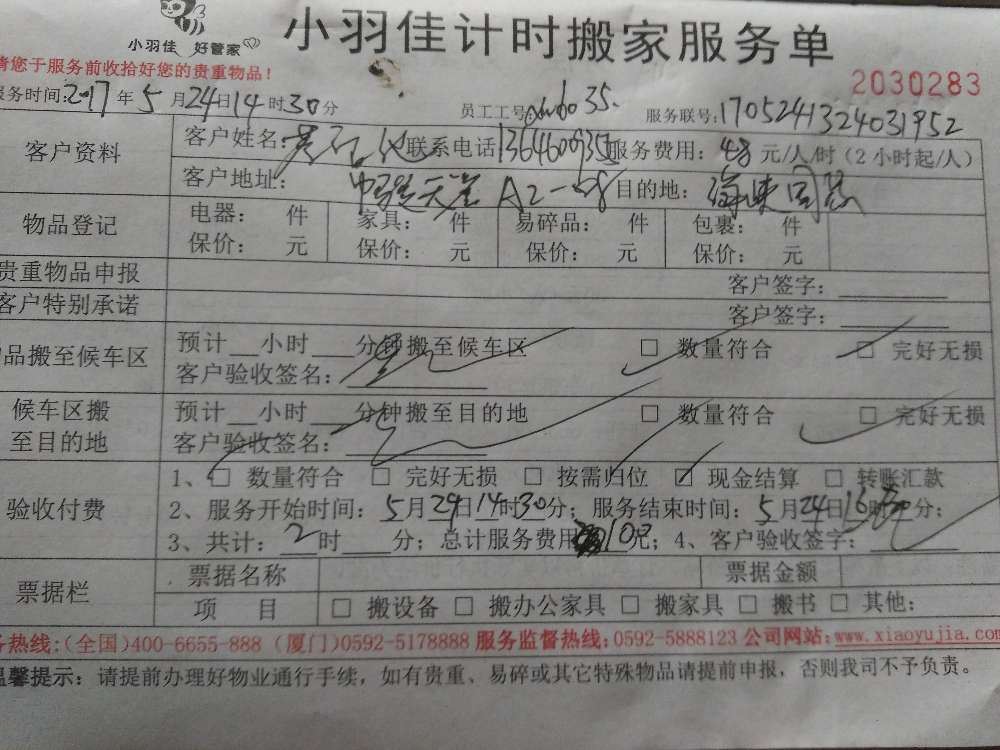 小羽佳 好管家
小羽佳计时搬家服务单
请您于服务前收拾好您的贵重物品！
2030283
服务时间：2017年5月24日14时30分 员工工号 35. 服务联号：1705241324031952
客户资料 客户姓名： 联系电话 服务费用：48元/人/时（2小时起/人）
客户地址： A2- 目的地：海峡国际
物品登记 电器： 件 家具： 件 易碎品： 件 包裹： 件
保价： 元 保价： 元 保价： 元 保价： 元
贵重物品申报 客户签字：
客户特别承诺 客户签字：
物品搬至候车区 预计 小时 分钟搬至候车区 □ 数量符合 □ 完好无损
客户验收签名：
候车区搬至目的地 预计 小时 分钟搬至目的地 □ 数量符合 □ 完好无损
客户验收签名：
验收付费 1、□ 数量符合 □ 完好无损 □ 按需归位 ☑ 现金结算 □ 转账汇款
2、服务开始时间：5月24日14时30分；服务结束时间：5月24日16时 分；
3、共计：2时 分；总计服务费用 元；4、客户验收签字：
票据栏 票据名称 票据金额
项 目 □ 搬设备 □ 搬办公家具 □ 搬家具 □ 搬书 □ 其他：
务热线:(全国)400-6655-888 (厦门)0592-5178888 服务监督热线:0592-5888123 公司网站:www.xiaoyujia.com
温馨提示：请提前办理好物业通行手续，如有贵重、易碎或其它特殊物品请提前申报，否则我司不予负责。